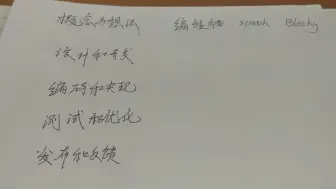 概念与想法 编程猫 scratch Blockly
设计和开发
编码和实现
测试和优化
发布和反馈